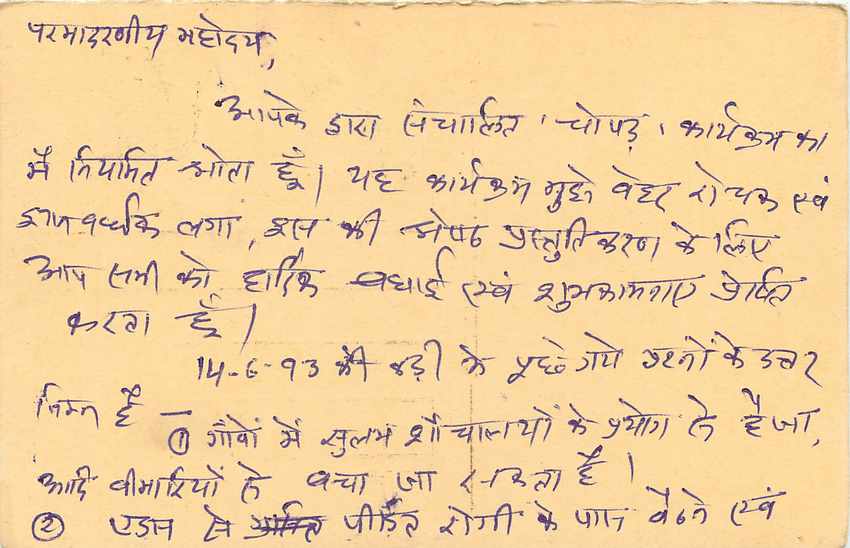 परमादरणीय महोदय,
आपके द्वारा संचालित 'चौपड़' कार्यक्रम का
मैं नियमित श्रोता हूँ। यह कार्यक्रम मुझे बेहद रोचक एवं
ज्ञानवर्धक लगा, इस की श्रेष्ठ प्रस्तुतिकरण के लिए
आप सभी को हार्दिक बधाई एवं शुभकामनाए प्रेषित
करता हूँ।
14-6-93 की कड़ी के पूछे गये प्रश्नों के उत्तर
निम्न है —
① गाँवों में सुलभ शौचालयों के प्रयोग से हैजा,
आदि बीमारियों से बचा जा सकता है।
② एडस से पीड़ित रोगी के पास बैठने एवं